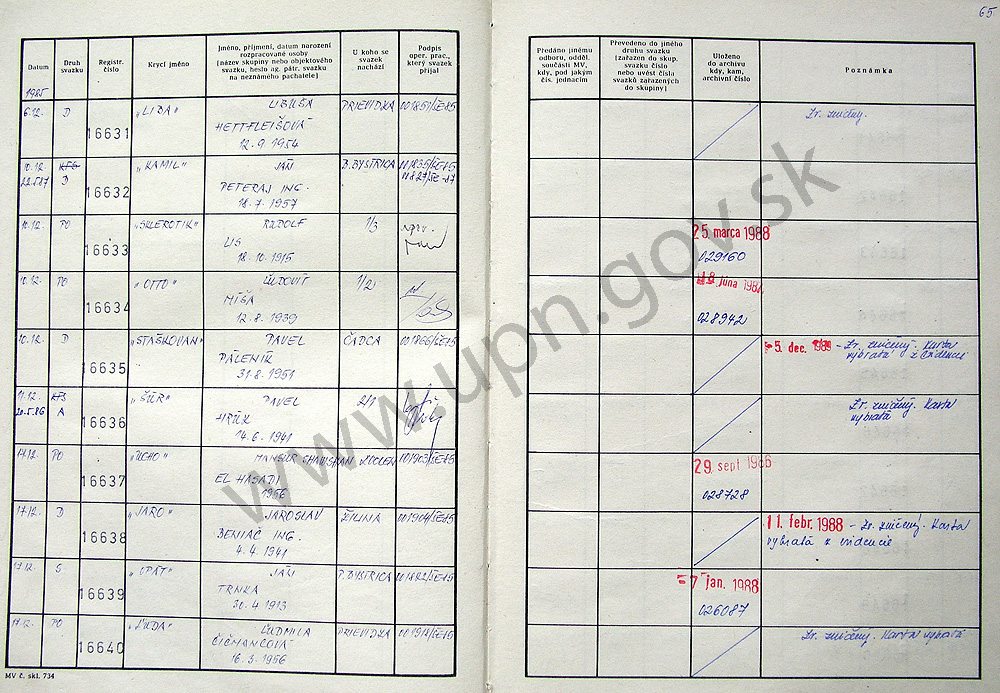 65
Datum
Druh svazku
Registr. číslo
Krycí jméno
Jméno, příjmení, datum narození
rozpracované osoby
(název skupiny nebo objektového
svazku, heslo ag. pátr. svazku
na neznámého pachatele)
U koho se
svazek
nachází
Podpis
oper. prac.,
který svazek
přijal
Předáno jinému
odboru, odděl.
součásti MV,
kdy, pod jakým
čís. jednacím
Převedeno do jiného
druhu svazku
(zařazen do skup.
svazku číslo
nebo uvést čísla
svazků zařazených
do skupiny)
Uloženo
do archivu
kdy, kam,
archivní číslo
Poznámka
1985
6.12. D 16631 "LIBA" LIBUŠA PRIEVIDZA
HETTFLEIŠOVÁ
12.9.1954
Zv. zničený.
10.12. KTS "KAMIL" JÁN B.BYSTRICA
22.5.87 D 16632 PETERAJ ING.
18.7.1957
10.12. PO 16633 "SKLEROTIK" RUDOLF 1/3
LIS
18.10.1915
25 marca 1988
029160
10.12. PO 16634 "OTTO" ĽUDOVÍT 1/2
MÍŠA
12.8.1939
júna
028942
10.12. D 16635 "STAŠKOVAN" PAVEL ČADCA
PÁLENÍK
31.8.1951
5. dec. - Zv. zničený. Karta
vybratá z evidencie
11.12. KTS "ŠÚR" PAVEL 2/1
20.5.86 A 16636 HRÚK
14.6.1941
Zv. zničený. Karta
vybratá
17.12. PO 16637 "UCHO" MANSUR ZVOLEN
EL HASADI
1956
29. sept 1986
028728
17.12. D 16638 "JARO" JAROSLAV ŽILINA
BENIAČ ING.
4.4.1941
11. febr. 1988 - Zv. zničený. Karta
vybratá z evidencie
17.12. S 16639 "OPÁT" JÁN P.BYSTRICA
TRNKA
30.4.1913
7 jan. 1988
026087
17.12. PO 16640 "ĽUDA" ĽUDMILA PRIEVIDZA
ČIČMANCOVÁ
16.3.1956
Zv. zničený. Karta vybratá
MV č. skl. 734
www.upn.gov.sk